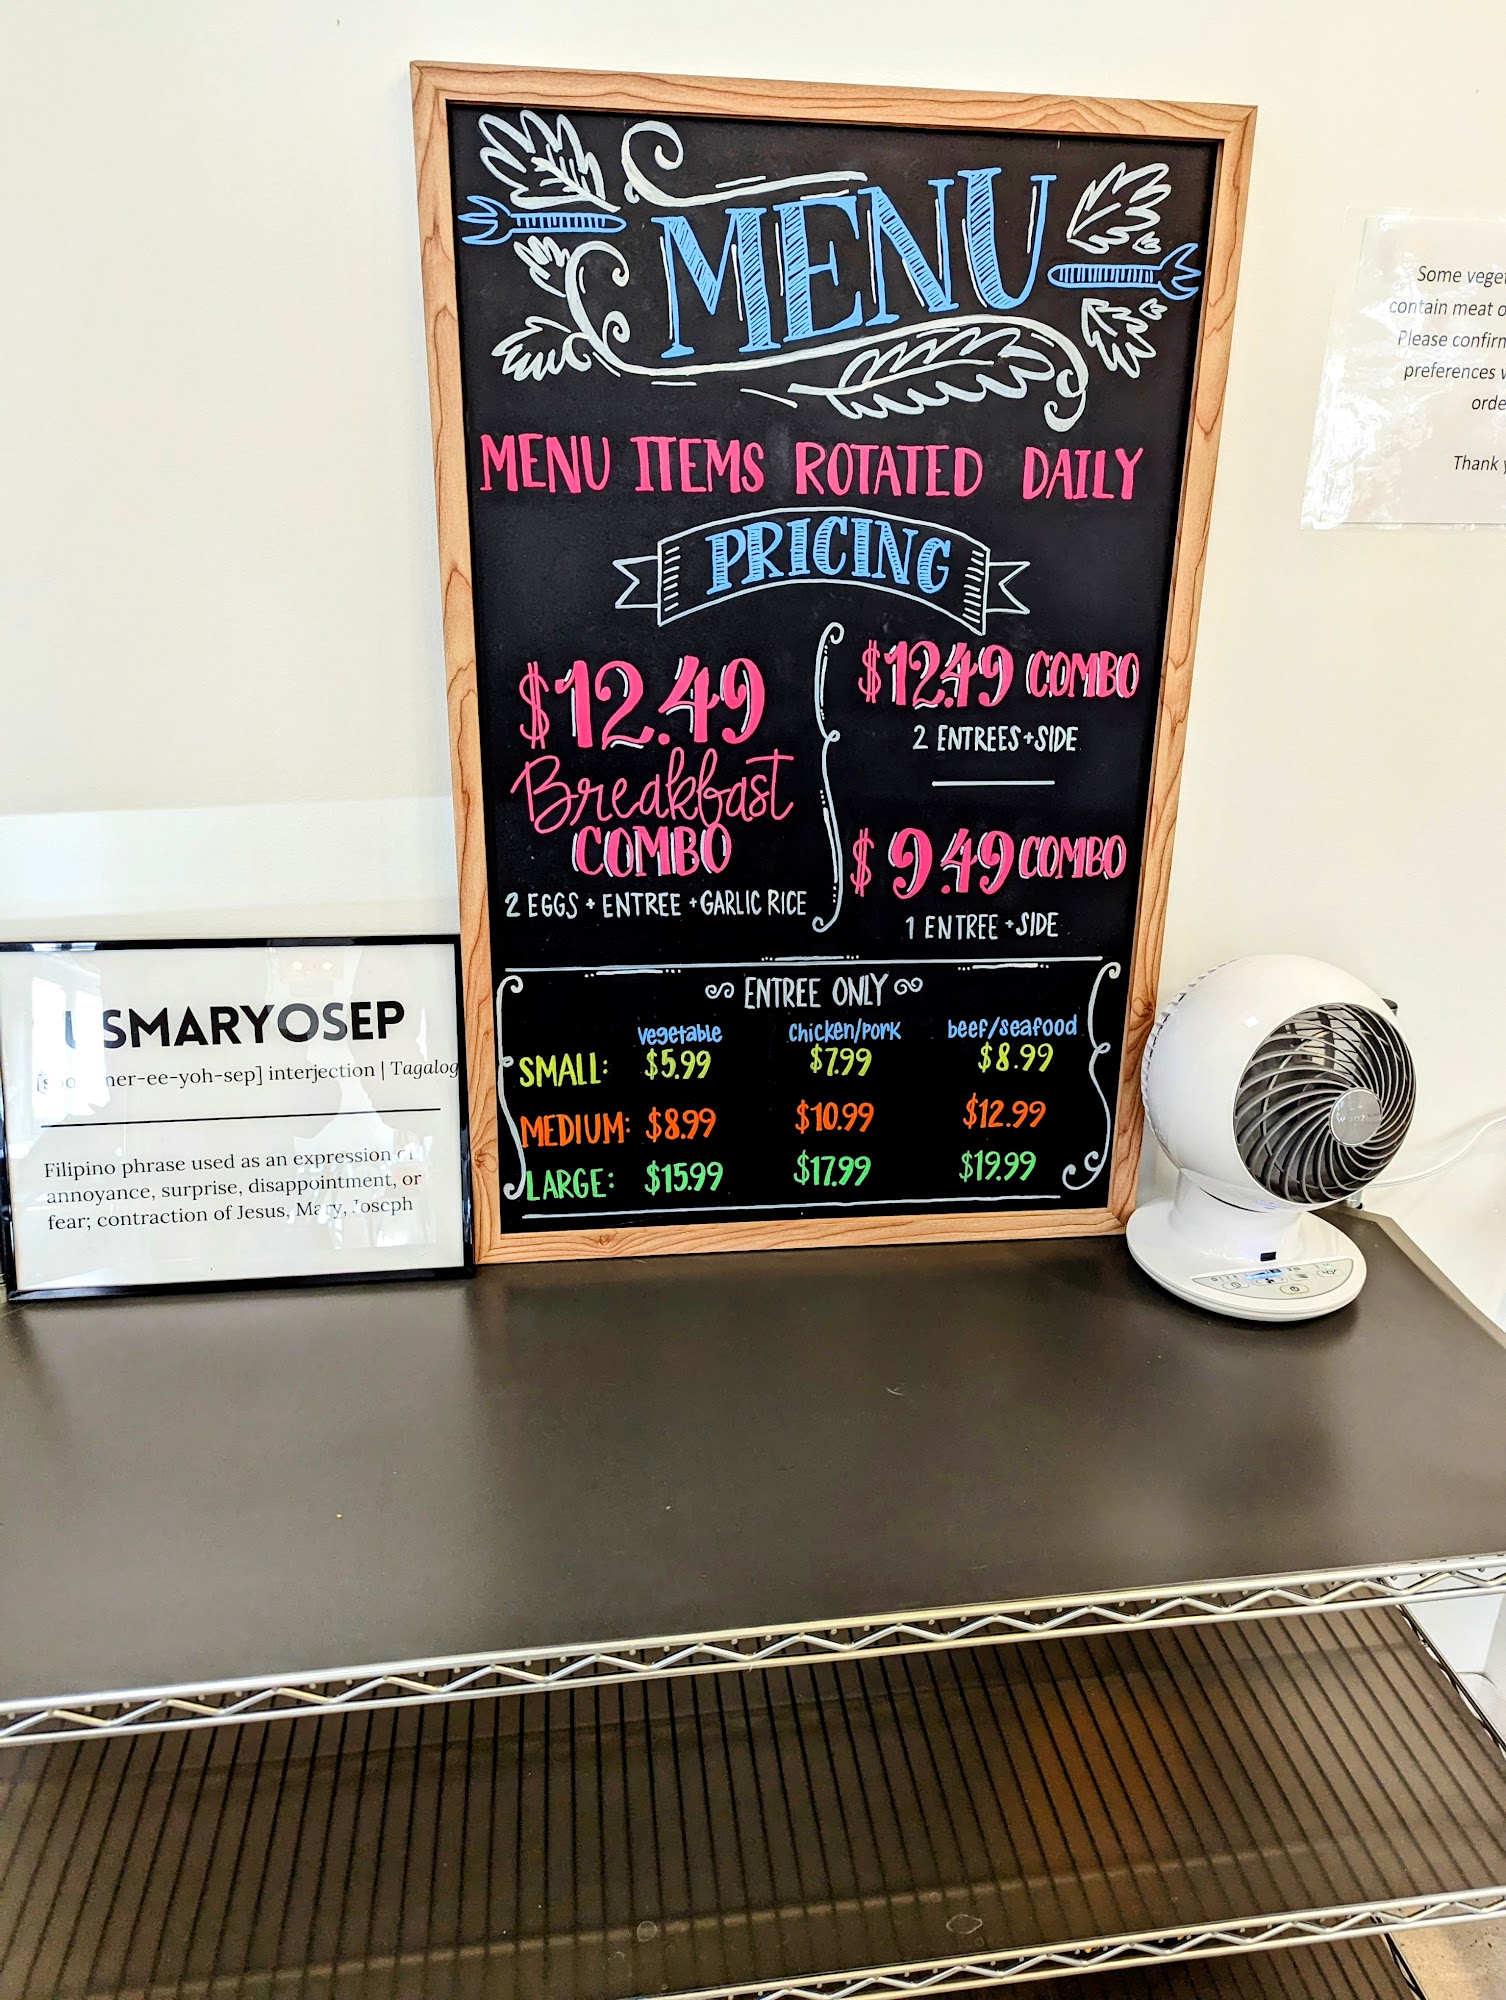 MENU
MENU ITEMS ROTATED DAILY
PRICING
$12.49
Breakfast
COMBO
2 EGGS + ENTREE + GARLIC RICE
$12.49 COMBO
2 ENTREES + SIDE
$9.49 COMBO
1 ENTREE + SIDE
ENTREE ONLY
vegetable chicken/pork beef/seafood
SMALL: $5.99 $7.99 $8.99
MEDIUM: $8.99 $10.99 $12.99
LARGE: $15.99 $17.99 $19.99
USMARYOSEP
interjection | Tagalog
Filipino phrase used as an expression of
annoyance, surprise, disappointment, or
fear; contraction of Jesus, Mary, Joseph
Some
contain meat
Please
preferences
Thank